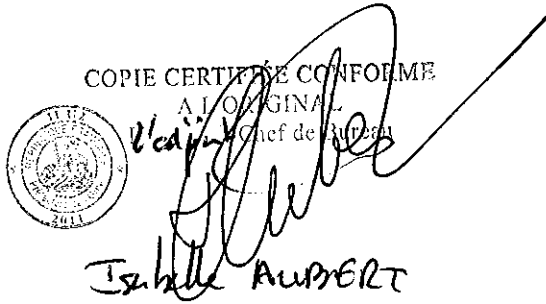 COPIE CERTIFIÉE CONFORME
A L'ORIGINAL
l'adjint Chef de Bureau
2011
Isabelle AUBERT